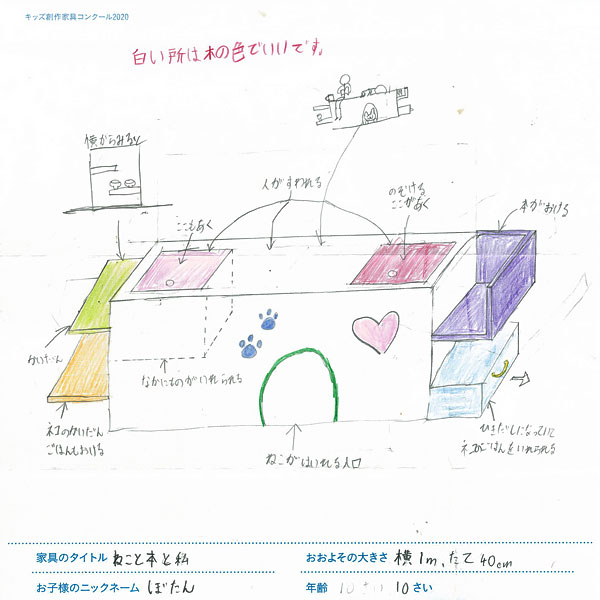 キッズ創作家具コンクール2020
白い所は木の色でいいです。
横からみると
人がすわれる
のぞける
ここがあく
本がおける
ここもあく
かいだん
なかにものがいれられる
ネコのかいだん
ごはんもおける
ねこがはいれる入口
ひきだしになっていて
ネコのごはんをいれられる
家具のタイトル ねこと本と私
おおよその大きさ 横1m、たて40cm
お子様のニックネーム ぼたん
年齢 10さい